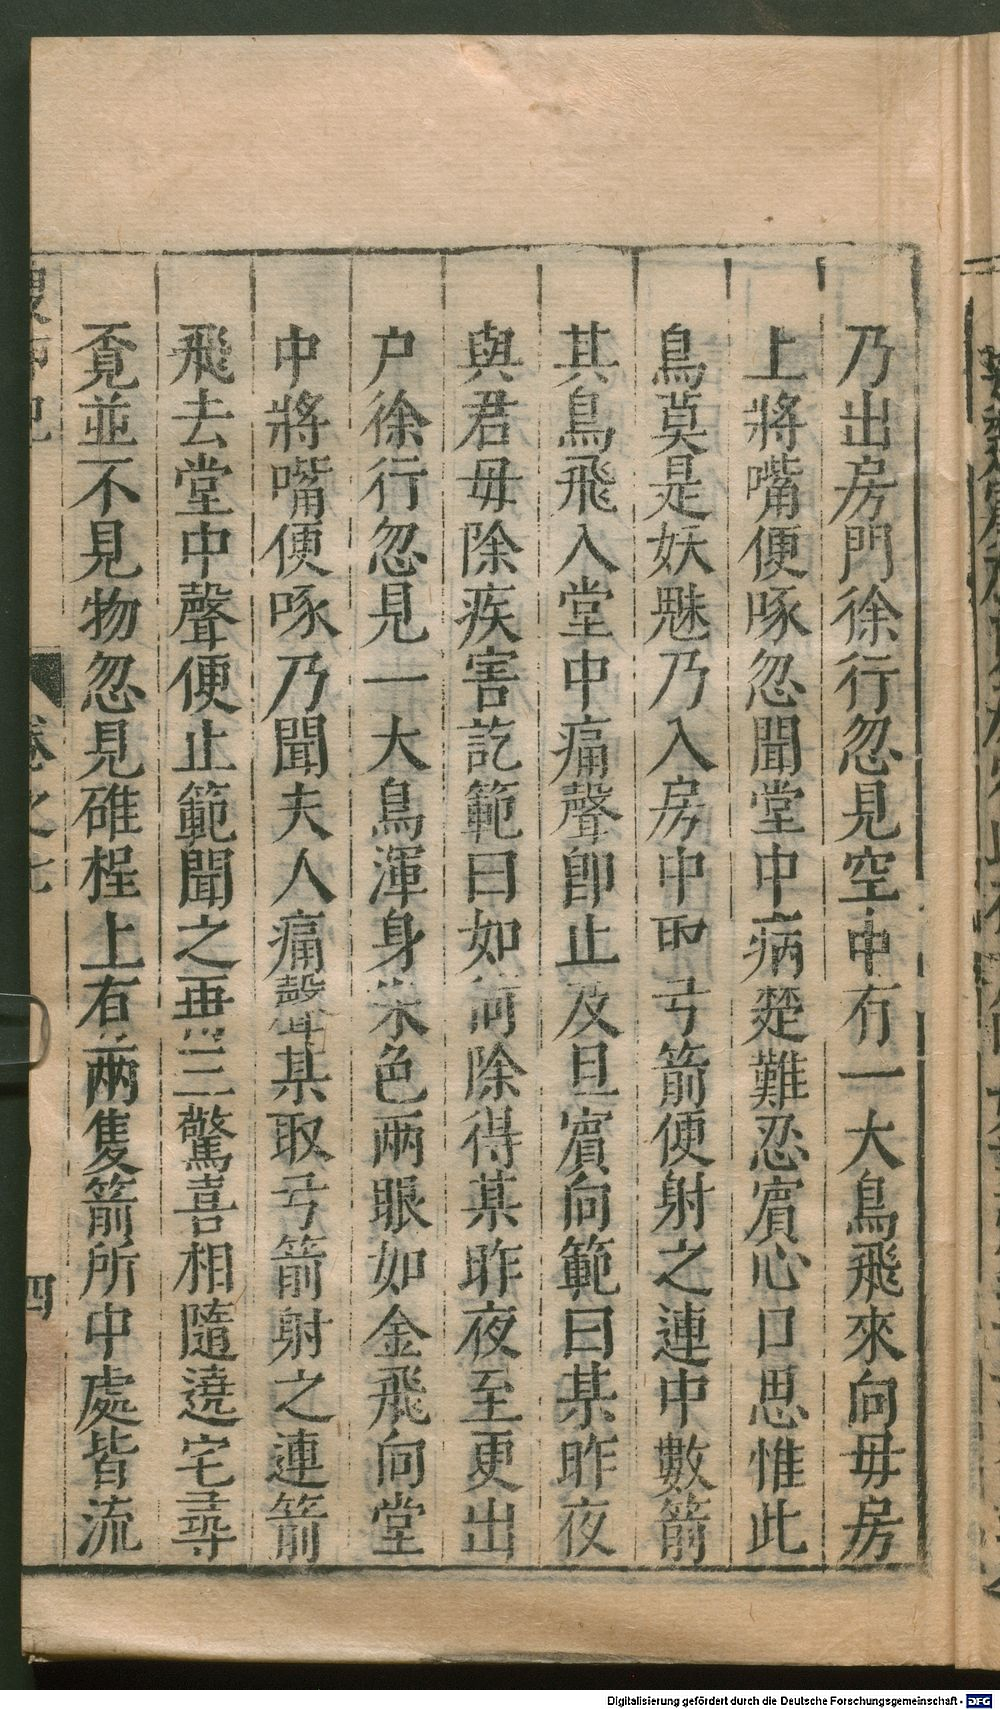 乃出房門徐行忽見空中有一大鳥飛來向毋房
上將嘴便啄忽聞堂中病楚難忍賔心口思惟此
鳥莫是妖魅乃入房中取弓箭便射之連中數箭
其鳥飛入堂中痛聲卽止及旦賔向範曰某昨夜
與君毋除疾害訖範曰如何除得某昨夜至更出
户徐行忽見一大鳥渾身朱色兩眼如金飛向堂
中將嘴便啄乃聞夫人痛聲某取弓箭射之連箭
飛去堂中聲便止範聞之再三驚喜相隨遶宅尋
覔並不見物忽見碓桯上有兩隻箭所中處皆流
搜神記 卷之七 四
Digitalisierung gefördert durch die Deutsche Forschungsgemeinschaft - DFG